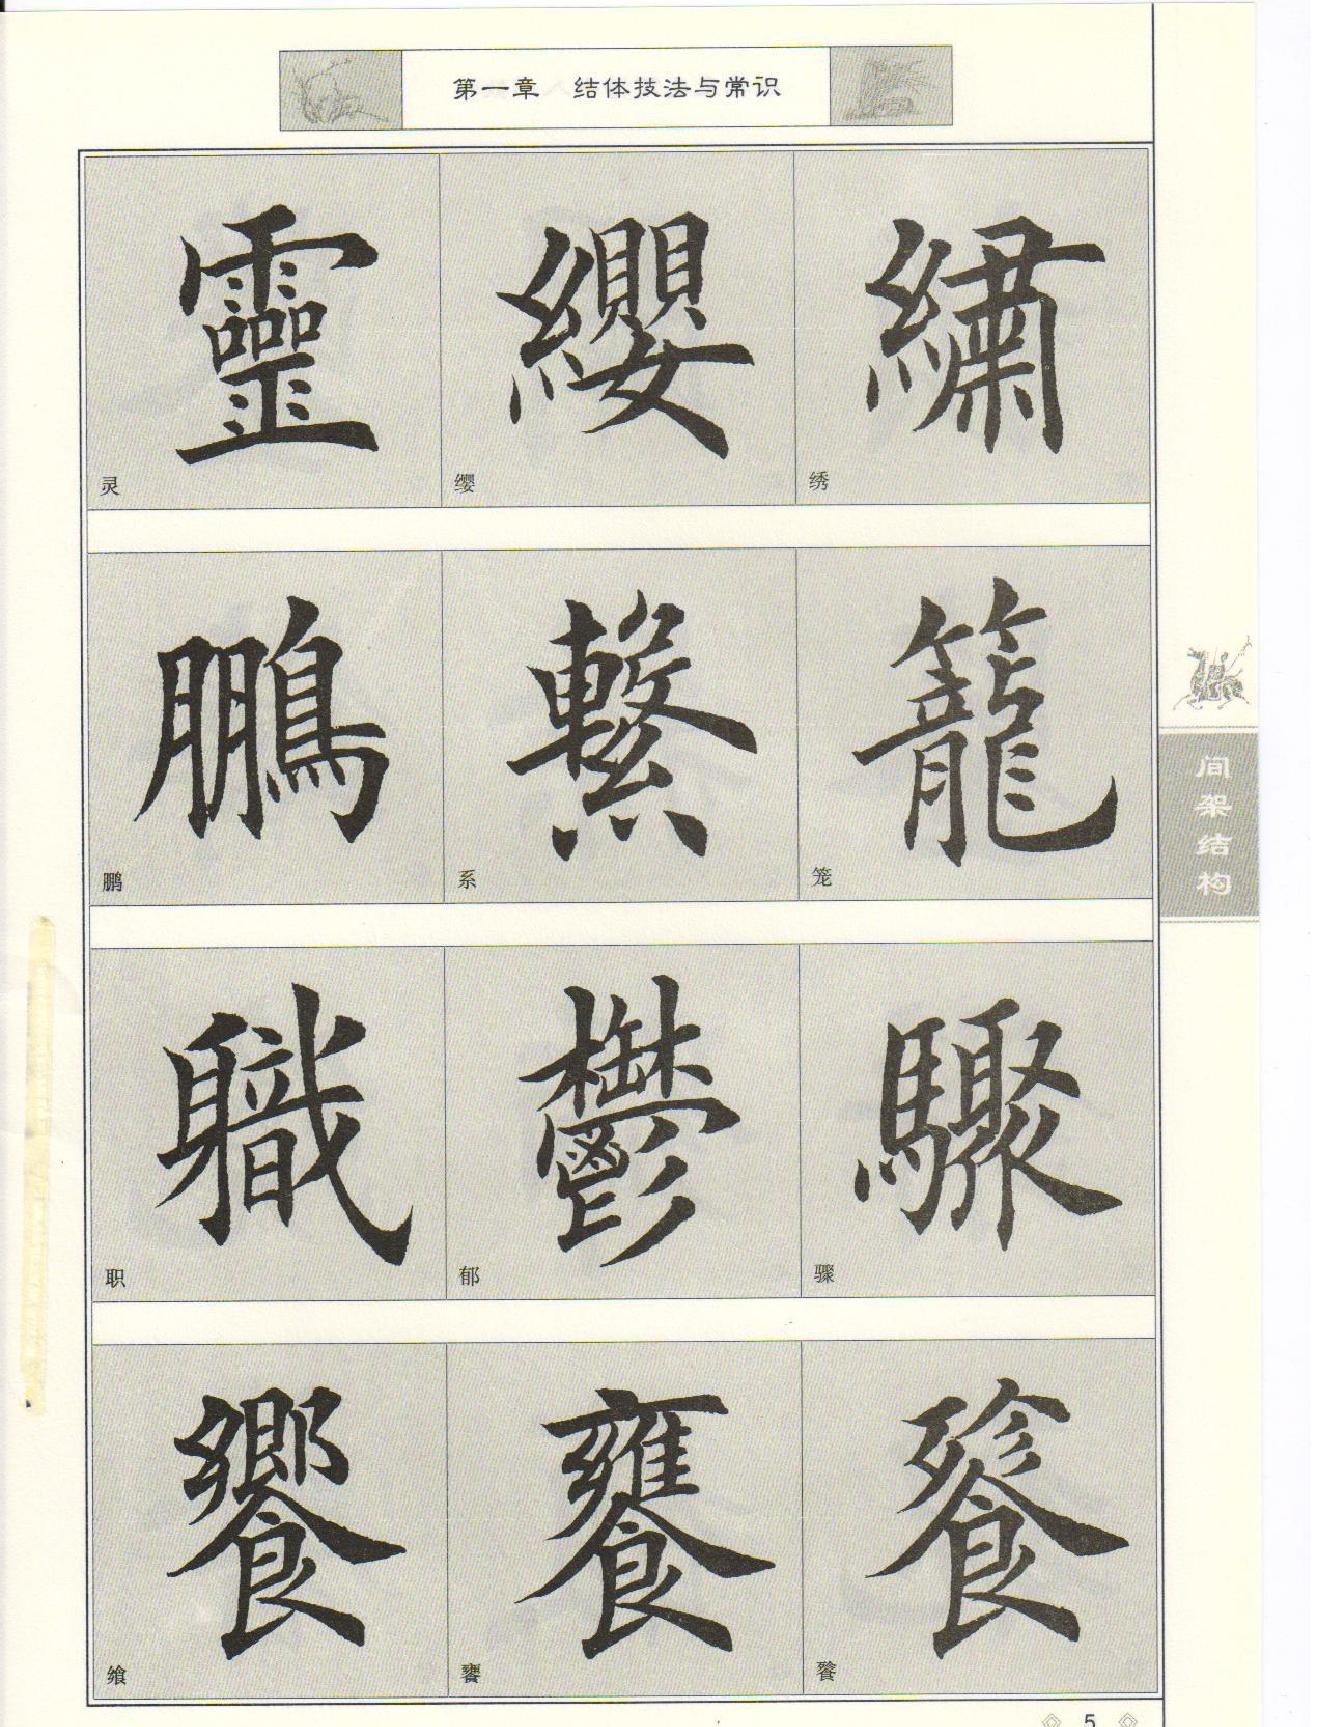 第一章 结体技法与常识
靈 纓 繡
灵 缨 绣
鵬 繫 籠
鹏 系 笼
職 鬱 驟
职 郁 骤
饗 饔 餮
飨 饔 餮
间架结构
5